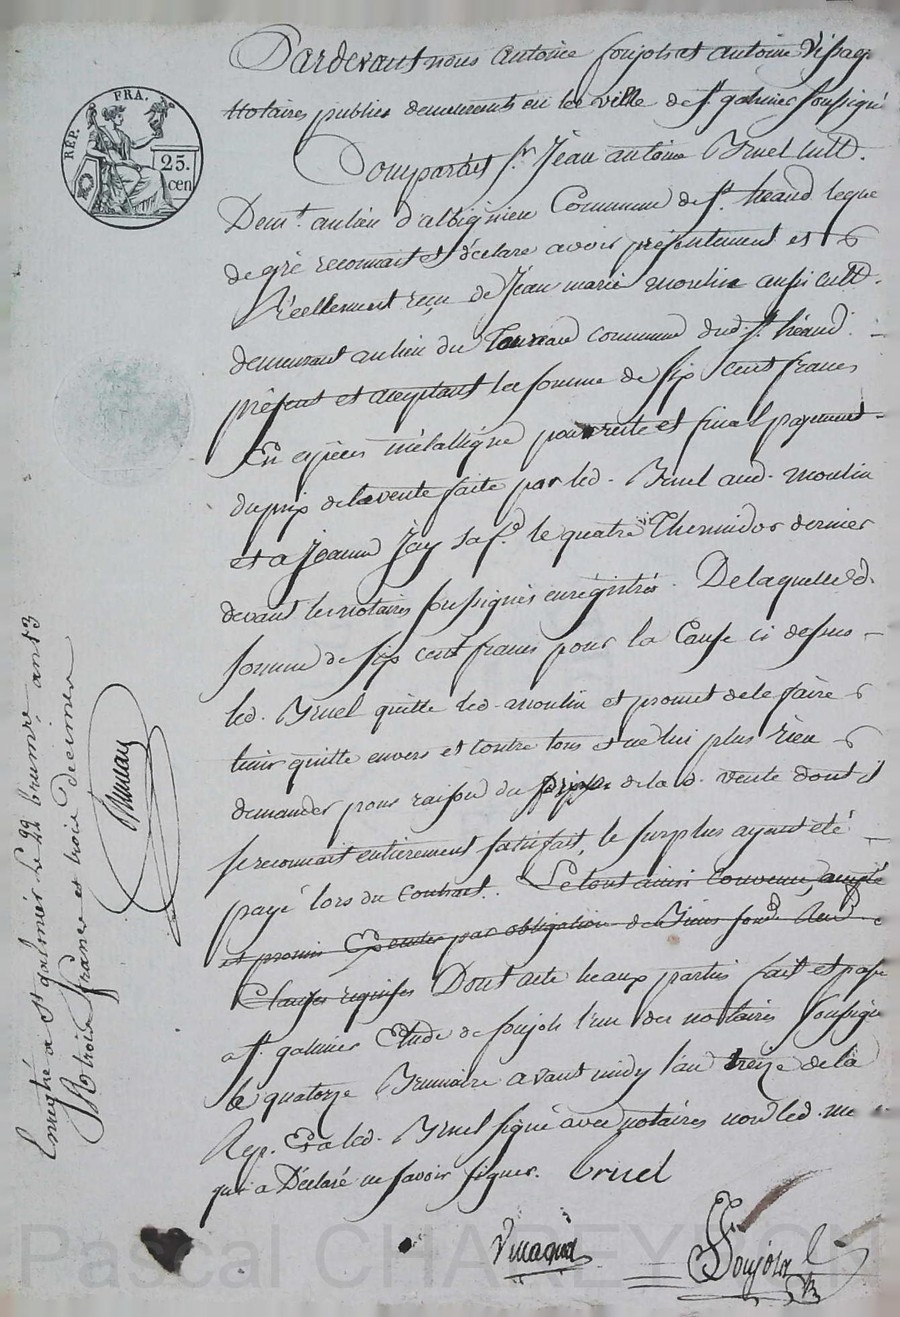 Pardevant nous antoine foujols et antoine
Notaires publics demeurants en la ville de St. galmier soussignés
Comparait sr. Jean antoine Bruel cultr.
Demt. au lieu d'albignieu Commune de St. heand lequel
de gré reconnait et déclare avoir présentement et
Réellement reçu de Jean marie moulin aussi cultr.
demeurant au lieu du commune dud. St. héand
présent et acceptant la somme de six cent francs
En espèces métallique pour reste et final payement
du prix de la vente faite par led. Bruel aud. moulin
et a Jeanne Jay sa fe. le quatre Thermidor dernier
devant les notaires soussignés enrégistrés. De laquelle d.
somme de six cent francs pour la Cause ci dessus
led. Bruel quitte led. moulin et promet de le faire
tenir quitte envers et contre tous et ne lui plus Rien
demander pour raison du prix de la d. vente dont il
se reconnait entièrement satisfait, le surplus ayant été
payé lors du Contrat. Le tout ainsi Convenu, accepté
et promis Executer par obligation de Biens
Clauses requises Dont acte aux parties fait et passé
a St. galmier Etude de foujols l'un des notaires Soussignés
le quatorze Brumaire avant midy l'an treize de la
Rep. Et a led. Bruel signé avec notaires non led. mo
qui a Déclaré ne savoir signer. bruel
foujols
RÉP. FRA.
25.
cen
Enregtré a St galmier le 22 brumre. an 13
R trois francs et trois decimes
Pascal CHAREYRON